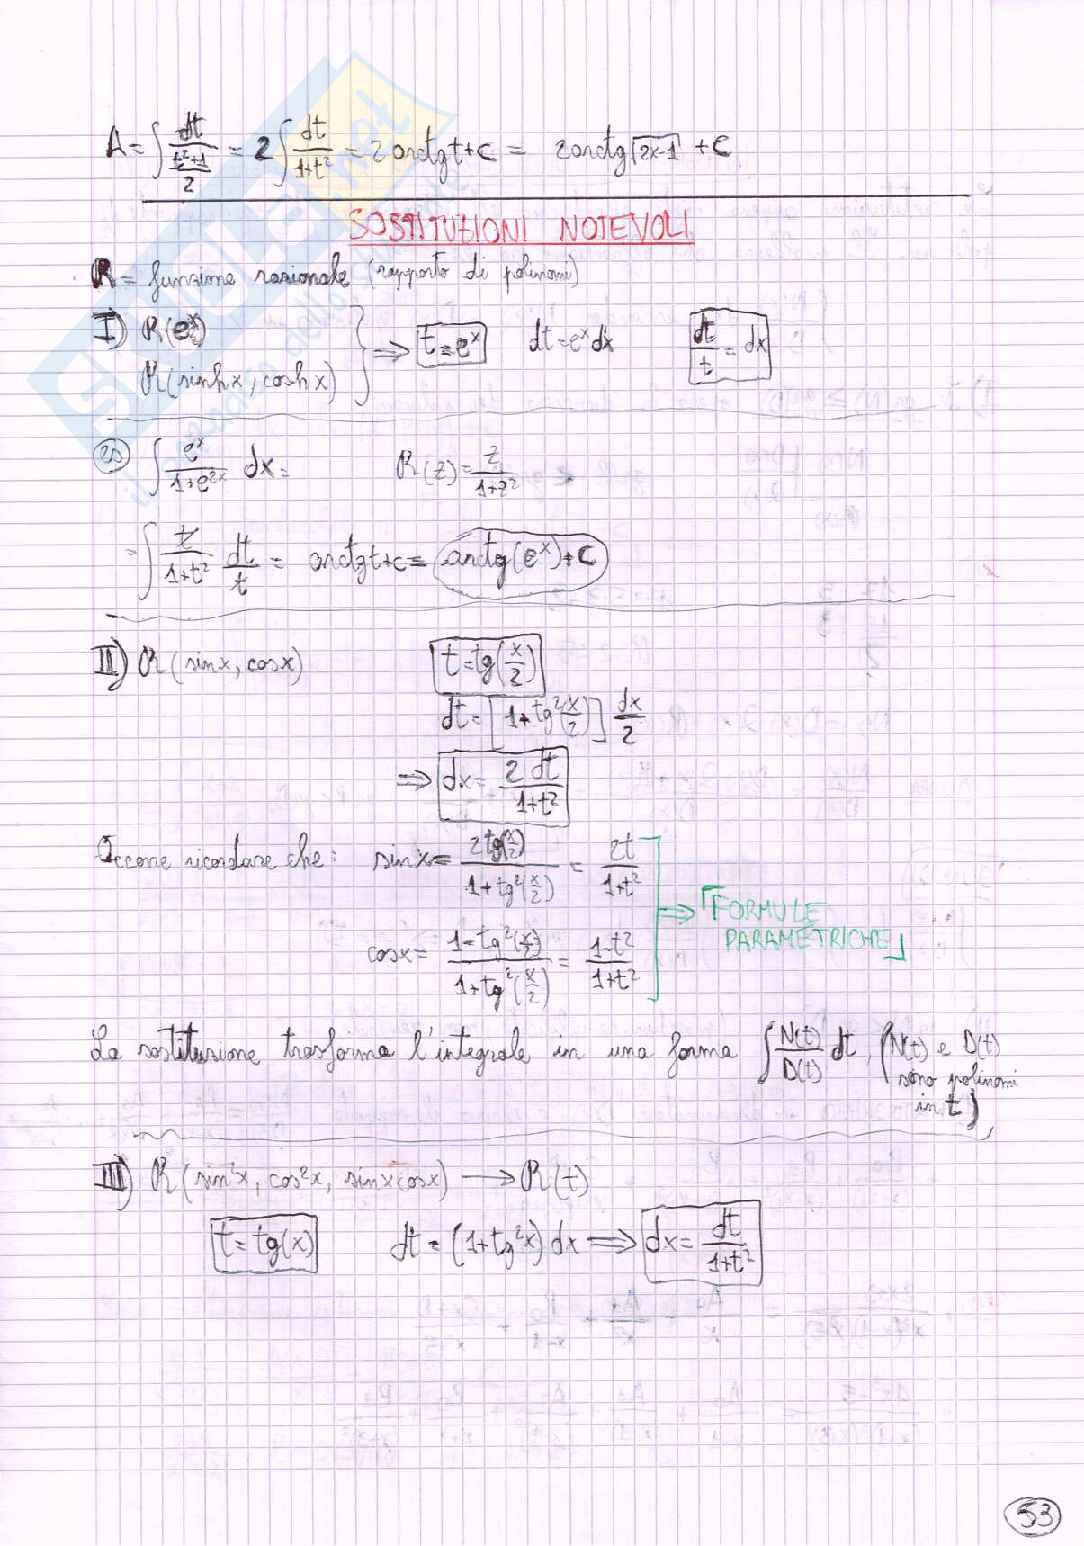 A = ∫ dt / ((t²+1)/2) = 2 ∫ dt/(1+t²) = 2 arctg t + c = 2 arctg √(2x-1) + C
SOSTITUZIONI NOTEVOLI
R = funzione razionale (rapporto di polinomi)
I) R(eˣ)
R(sinh x, cosh x) } ⇒ t = eˣ dt = eˣ dx dt/t = dx
∫ eˣ/(1+e²ˣ) dx = R(z) = z/(1+z²)
= ∫ t/(1+t²) dt/t = arctg t + c = arctg(eˣ) + C
II) R(sin x, cos x) t = tg(x/2)
dt = [1 + tg²(x/2)] dx/2
⇒ dx = 2 dt/(1+t²)
Occorre ricordare che: sin x = 2 tg(x/2) / (1 + tg²(x/2)) = 2t/(1+t²)
⇒ "FORMULE
PARAMETRICHE"
cos x = (1 - tg²(x/2)) / (1 + tg²(x/2)) = (1-t²)/(1+t²)
La sostituzione trasforma l'integrale in una forma ∫ N(t)/D(t) dt, (N(t) e D(t)
sono polinomi
in t)
III) R(sin²x, cos²x, sin x cos x) → R(t)
t = tg(x) dt = (1 + tg²x) dx ⇒ dx = dt/(1+t²)
53